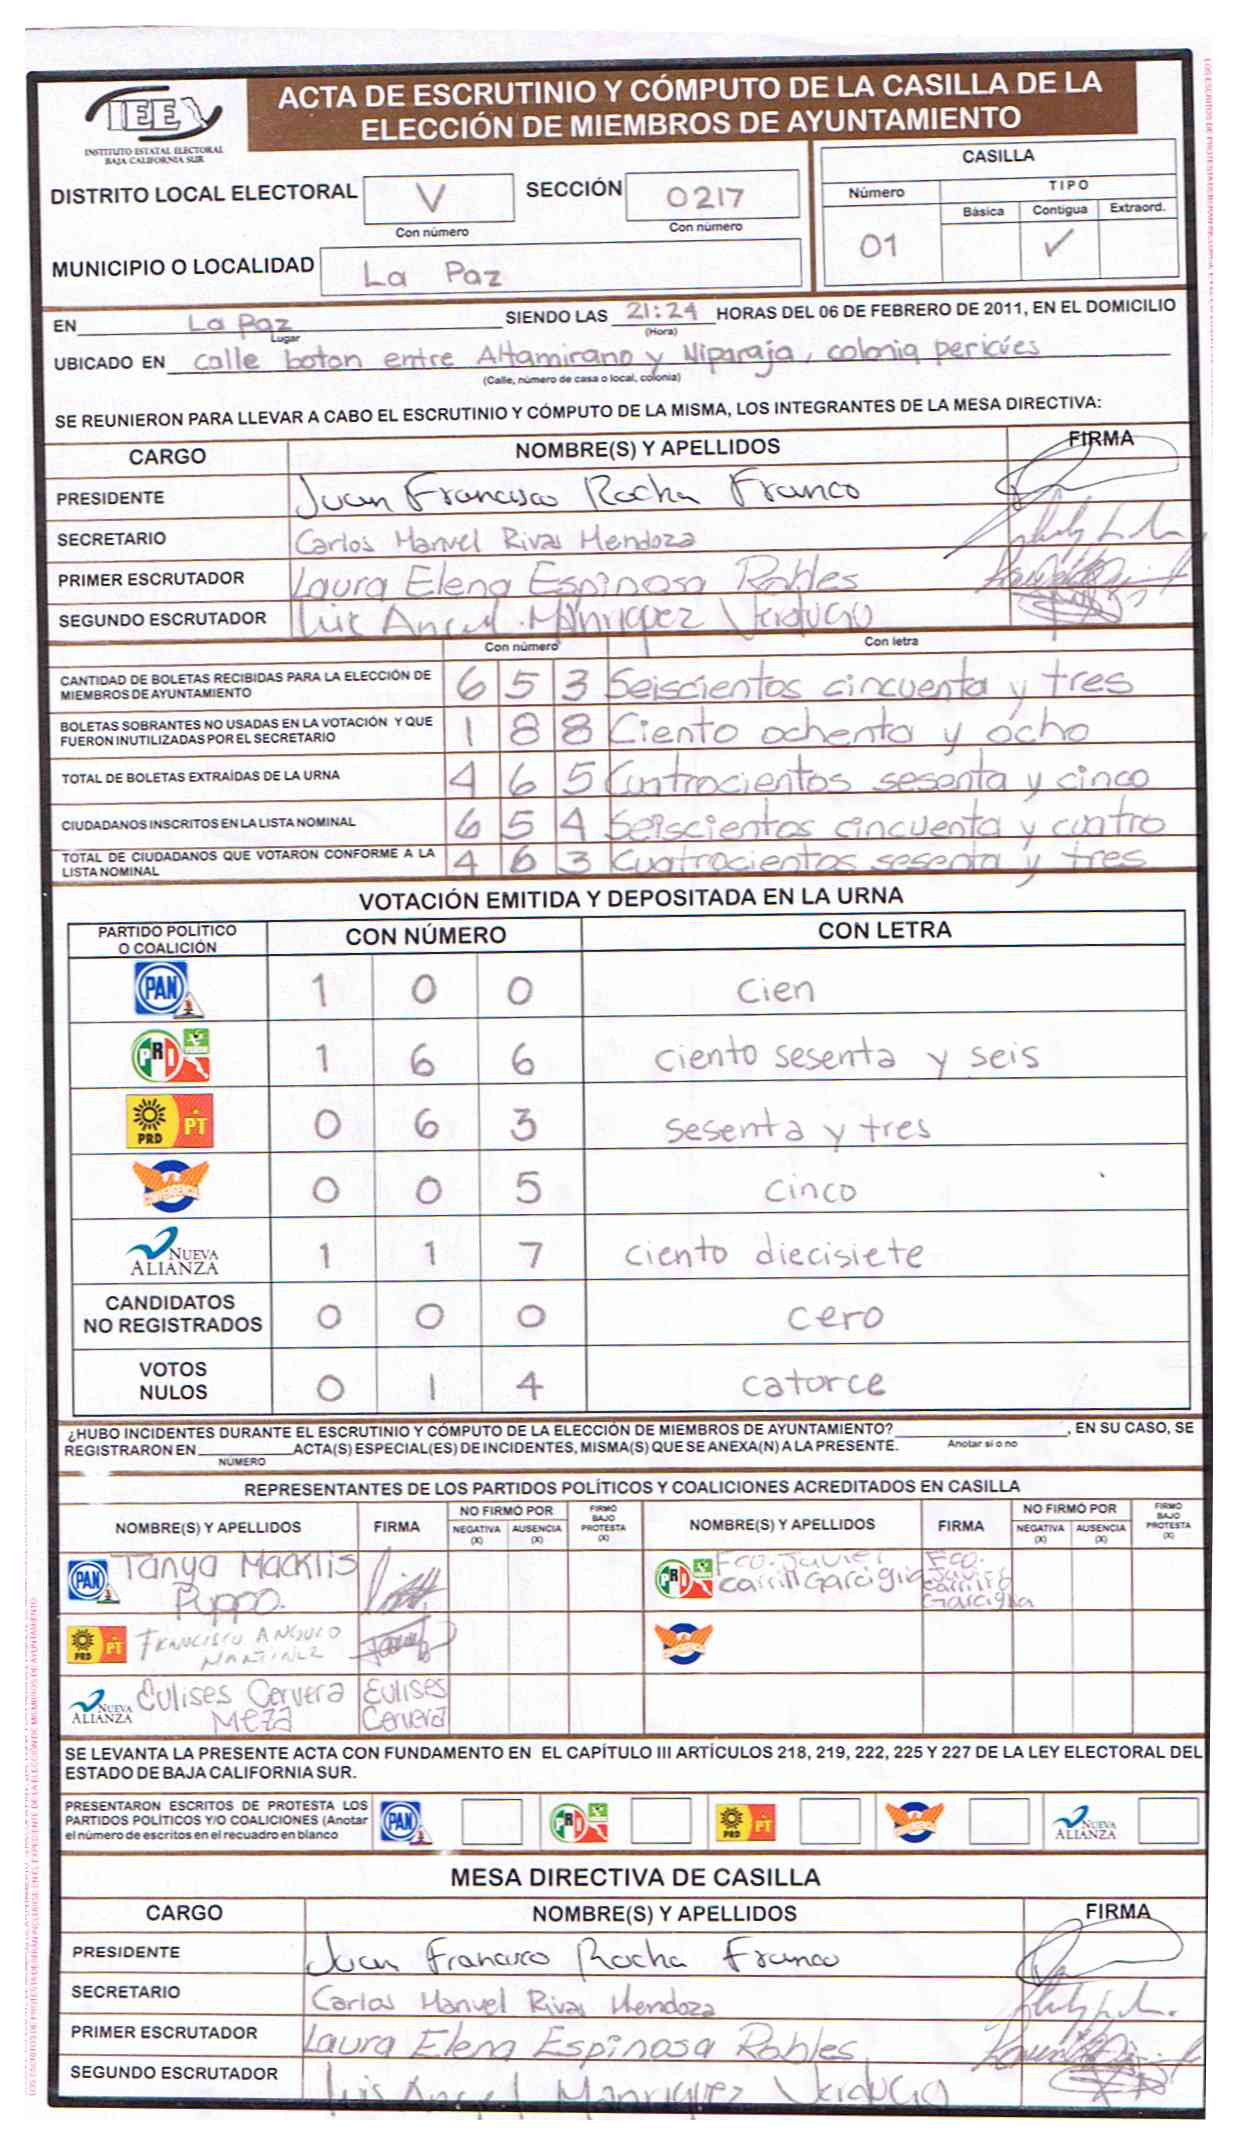 IEE
INSTITUTO ESTATAL ELECTORAL
BAJA CALIFORNIA SUR
ACTA DE ESCRUTINIO Y CÓMPUTO DE LA CASILLA DE LA
ELECCIÓN DE MIEMBROS DE AYUNTAMIENTO
DISTRITO LOCAL ELECTORAL V SECCIÓN 0217
Con número Con número
MUNICIPIO O LOCALIDAD La Paz
CASILLA
Número TIPO
Básica Contigua Extraord.
01 ✓
EN La Paz SIENDO LAS 21:24 HORAS DEL 06 DE FEBRERO DE 2011, EN EL DOMICILIO
Lugar (Hora)
UBICADO EN calle boton entre Altamirano y Niparaja, colonia pericúes
(Calle, número de casa o local, colonia)
SE REUNIERON PARA LLEVAR A CABO EL ESCRUTINIO Y CÓMPUTO DE LA MISMA, LOS INTEGRANTES DE LA MESA DIRECTIVA:
CARGO NOMBRE(S) Y APELLIDOS FIRMA
PRESIDENTE Juan Francisco Rocha Franco
SECRETARIO Carlos Manuel Rivas Mendoza
PRIMER ESCRUTADOR Laura Elena Espinosa Robles
SEGUNDO ESCRUTADOR Luis Angel Manriquez Verdugo
Con número Con letra
CANTIDAD DE BOLETAS RECIBIDAS PARA LA ELECCIÓN DE
MIEMBROS DE AYUNTAMIENTO 6 5 3 Seiscientos cincuenta y tres
BOLETAS SOBRANTES NO USADAS EN LA VOTACIÓN Y QUE
FUERON INUTILIZADAS POR EL SECRETARIO 1 8 8 Ciento ochenta y ocho
TOTAL DE BOLETAS EXTRAÍDAS DE LA URNA 4 6 5 Cuatrocientos sesenta y cinco
CIUDADANOS INSCRITOS EN LA LISTA NOMINAL 6 5 4 Seiscientos cincuenta y cuatro
TOTAL DE CIUDADANOS QUE VOTARON CONFORME A LA
LISTA NOMINAL 4 6 3 Cuatrocientos sesenta y tres
VOTACIÓN EMITIDA Y DEPOSITADA EN LA URNA
PARTIDO POLÍTICO
O COALICIÓN CON NÚMERO CON LETRA
PAN 1 0 0 cien
PRI 1 6 6 ciento sesenta y seis
PRD PT 0 6 3 sesenta y tres
CONVERGENCIA 0 0 5 cinco
NUEVA ALIANZA 1 1 7 ciento diecisiete
CANDIDATOS
NO REGISTRADOS 0 0 0 cero
VOTOS
NULOS 0 1 4 catorce
¿HUBO INCIDENTES DURANTE EL ESCRUTINIO Y CÓMPUTO DE LA ELECCIÓN DE MIEMBROS DE AYUNTAMIENTO? , EN SU CASO, SE
REGISTRARON EN ACTA(S) ESPECIAL(ES) DE INCIDENTES, MISMA(S) QUE SE ANEXA(N) A LA PRESENTE. Anotar si o no
NÚMERO
REPRESENTANTES DE LOS PARTIDOS POLÍTICOS Y COALICIONES ACREDITADOS EN CASILLA
NOMBRE(S) Y APELLIDOS FIRMA NO FIRMÓ POR NEGATIVA (X) AUSENCIA (X) FIRMÓ BAJO PROTESTA (X) NOMBRE(S) Y APELLIDOS FIRMA NO FIRMÓ POR NEGATIVA (X) AUSENCIA (X) FIRMÓ BAJO PROTESTA (X)
PAN Tanya Macklis Puppo. PRI Fco. Javier Carrill Garciglia Fco. Javier Carrillo Garciglia
PRD PT Francisco Angulo Martinez
NUEVA ALIANZA Eulises Cervera Meza Eulises Cervera
SE LEVANTA LA PRESENTE ACTA CON FUNDAMENTO EN EL CAPÍTULO III ARTÍCULOS 218, 219, 222, 225 Y 227 DE LA LEY ELECTORAL DEL
ESTADO DE BAJA CALIFORNIA SUR.
PRESENTARON ESCRITOS DE PROTESTA LOS
PARTIDOS POLÍTICOS Y/O COALICIONES (Anotar
el número de escritos en el recuadro en blanco
PAN PRI PRD PT NUEVA ALIANZA
MESA DIRECTIVA DE CASILLA
CARGO NOMBRE(S) Y APELLIDOS FIRMA
PRESIDENTE Juan Francisco Rocha Franco
SECRETARIO Carlos Manuel Rivas Mendoza
PRIMER ESCRUTADOR Laura Elena Espinosa Robles
SEGUNDO ESCRUTADOR Luis Angel Manriquez Verdugo